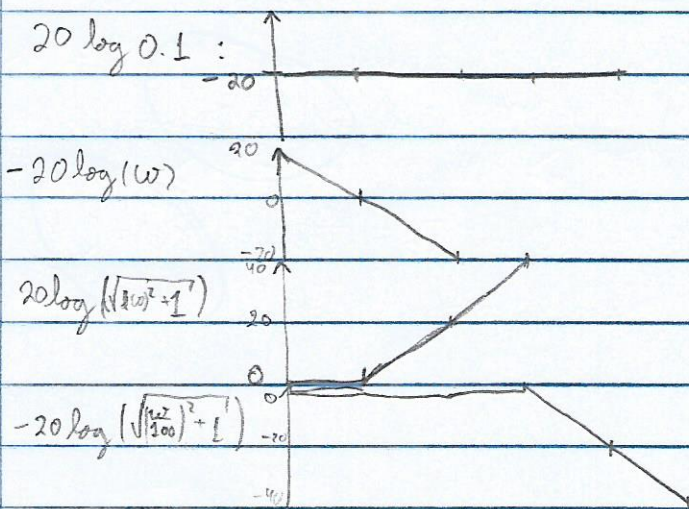 20 log 0.1 :
-20
20
-20 log(ω)
0
-20
40
20 log(√(1ω)²+1)
20
0
0
-20 log(√(ω/100)²+1)
-20
-40